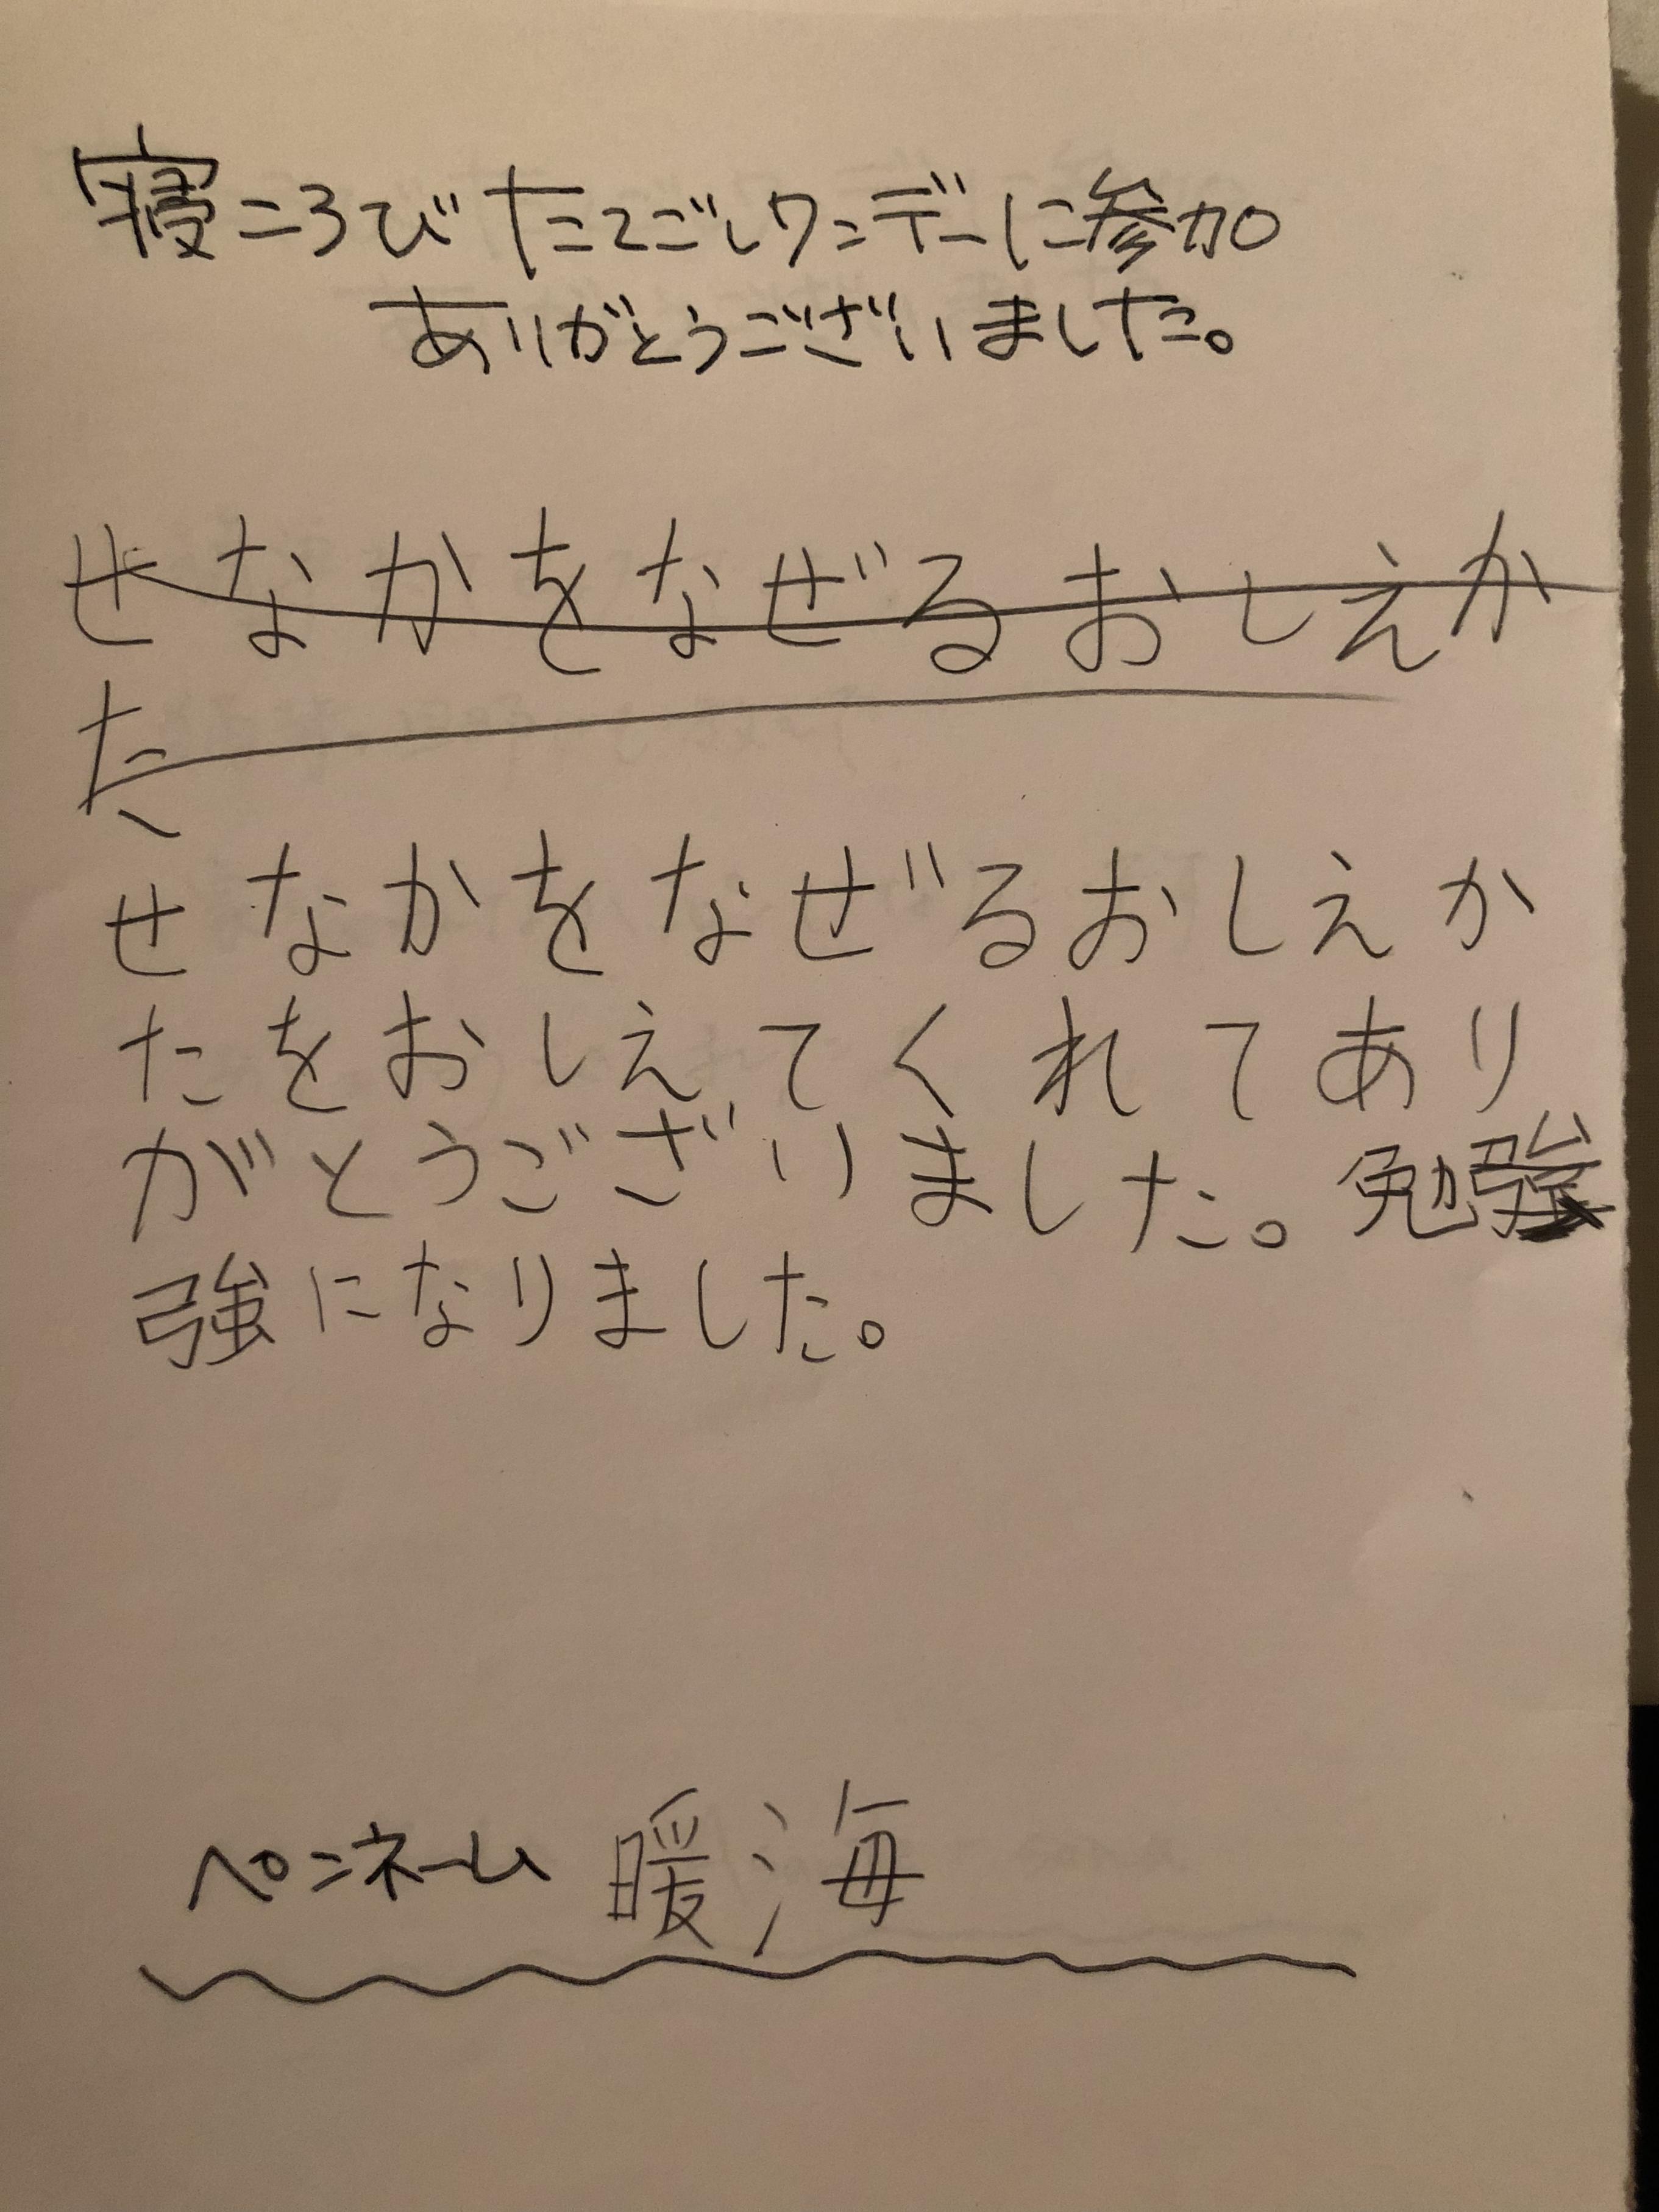 寝ころびたてごしワンデーに参加
ありがとうございました。
せなかをなぜるおしえか
た
せなかをなぜるおしえか
たをおしえてくれてあり
がとうございました。勉強
強になりました。
ペンネーム 暖海